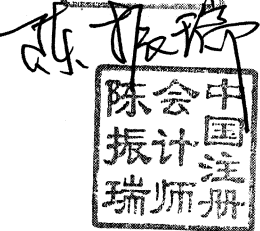 陈振瑞
中国注册
会计师
陈振瑞